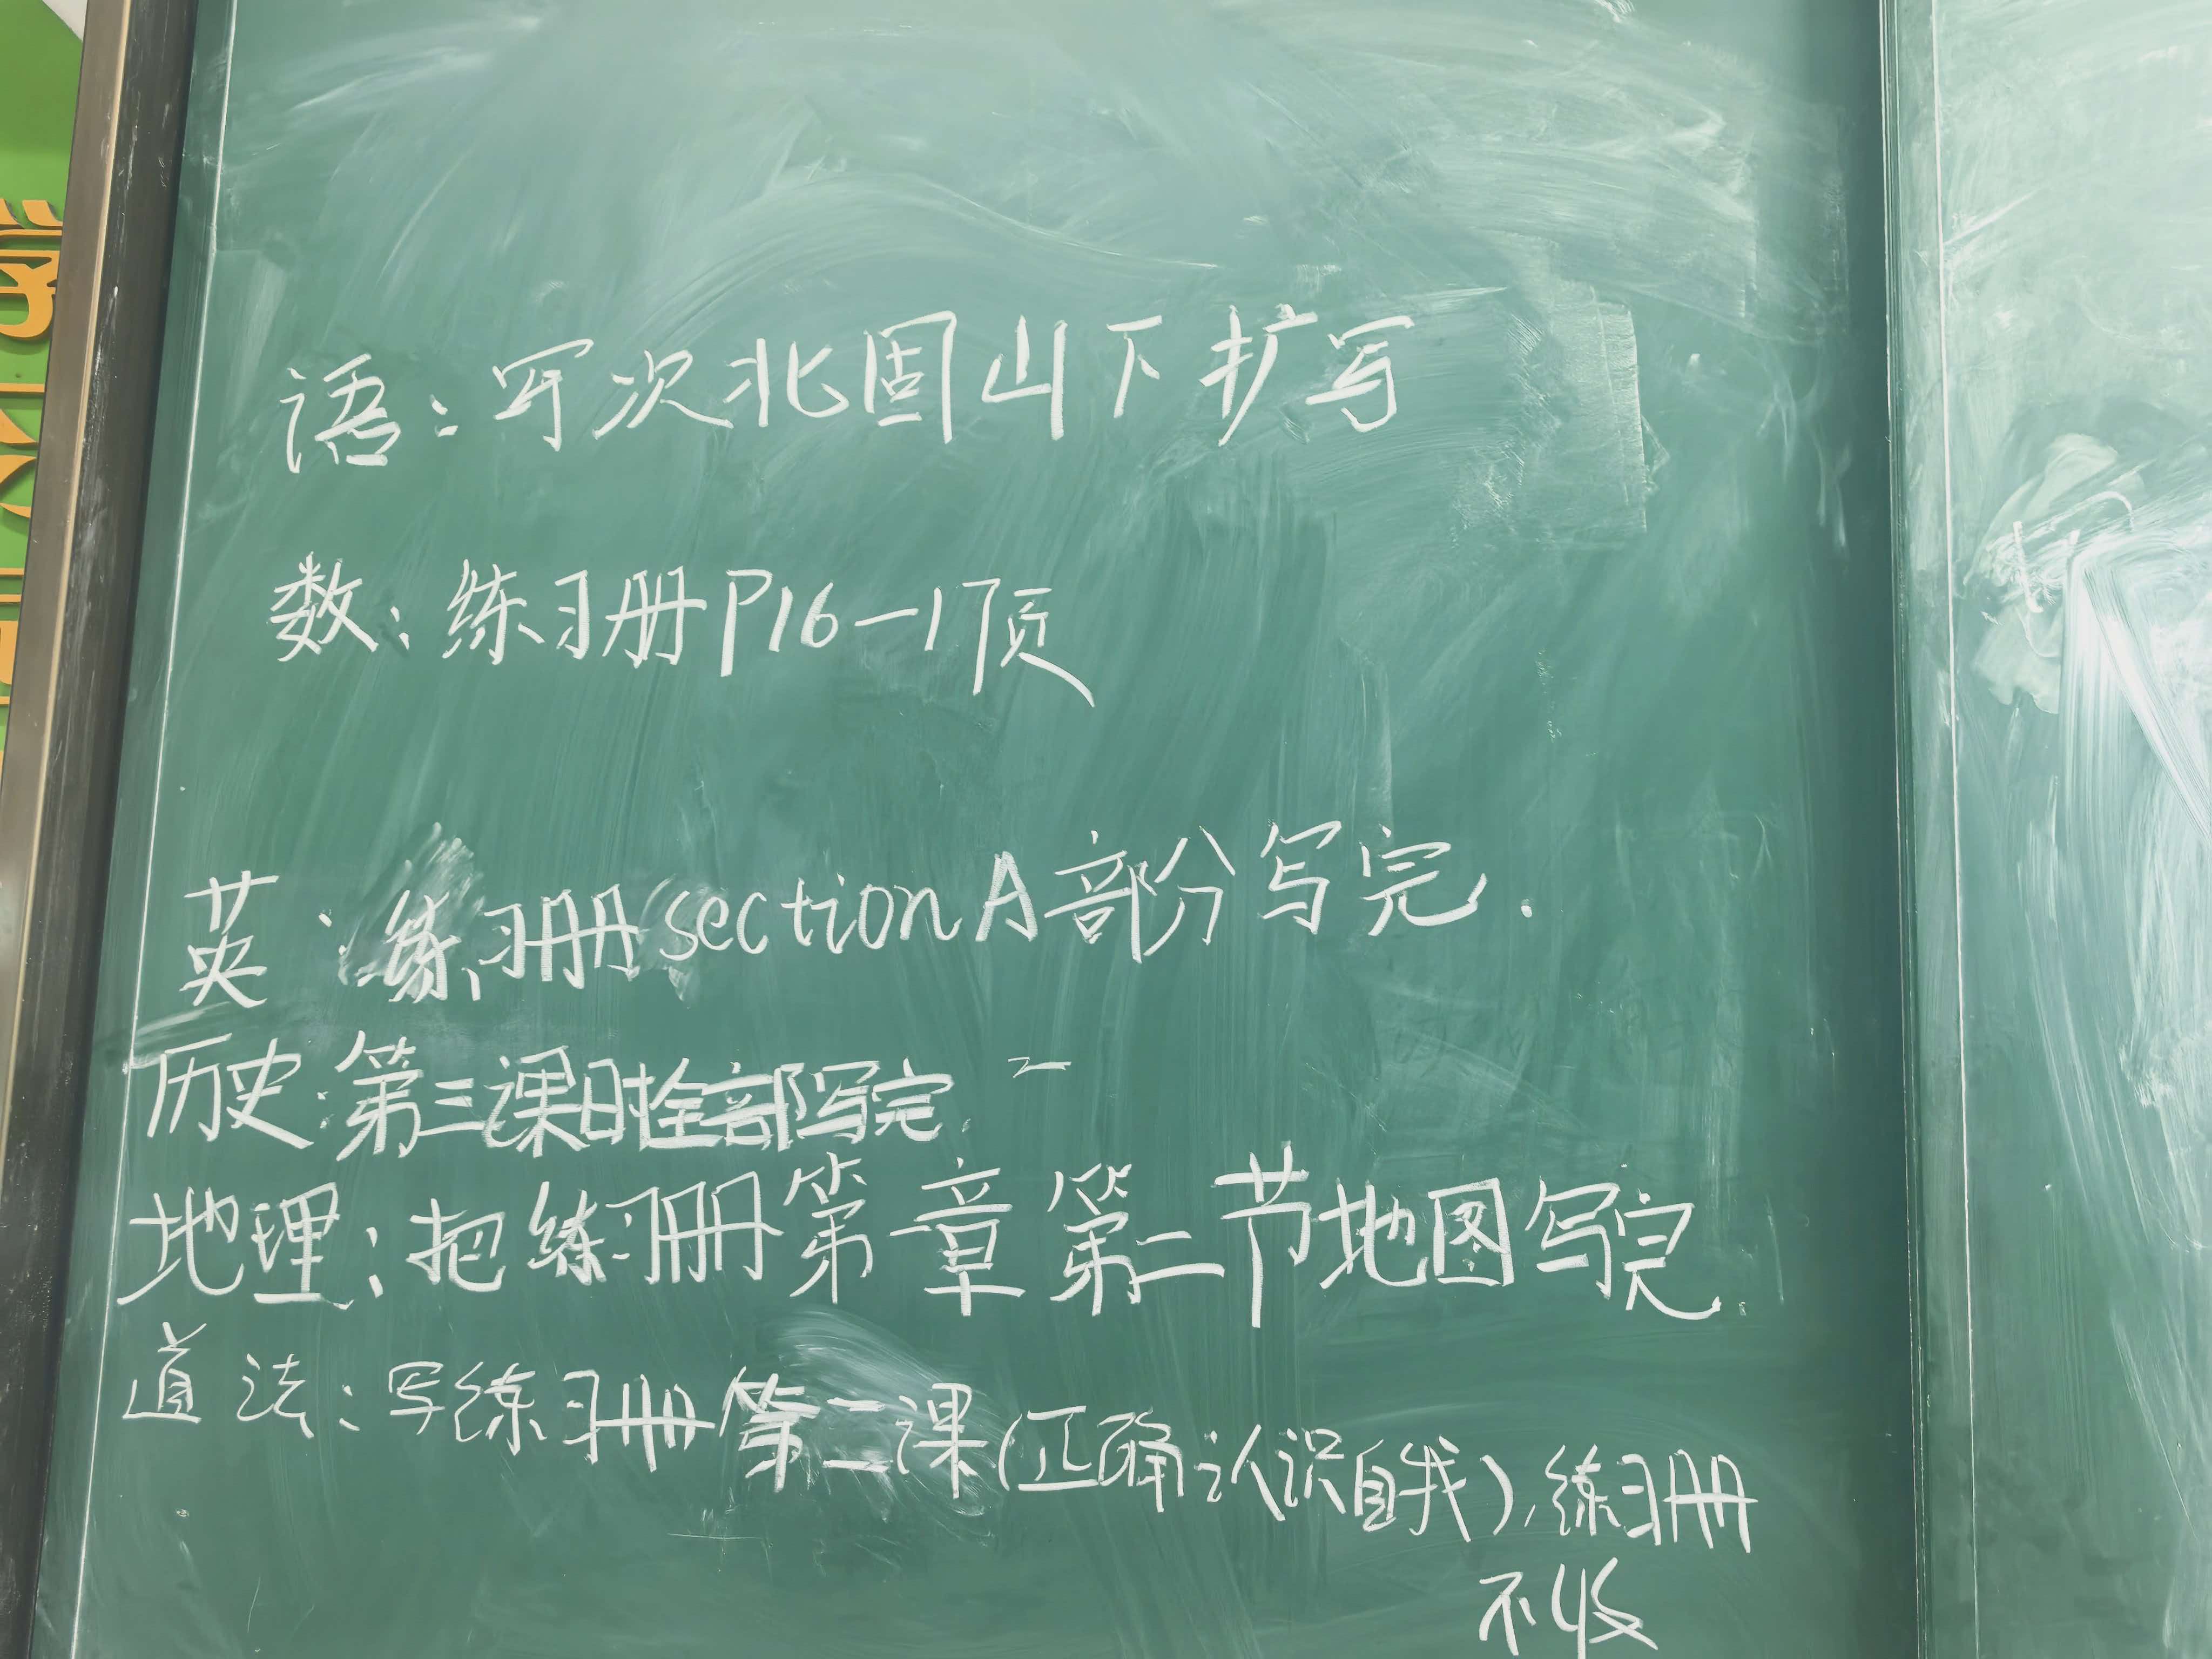 语:写次北固山下扩写
数:练习册P16-17页
英:练习册sectionA部分写完.
历史:第三课时全部写完.
地理:把练习册第一章第二节地图写完.
道法:写练习册第二课(正确认识自我),练习册
不收